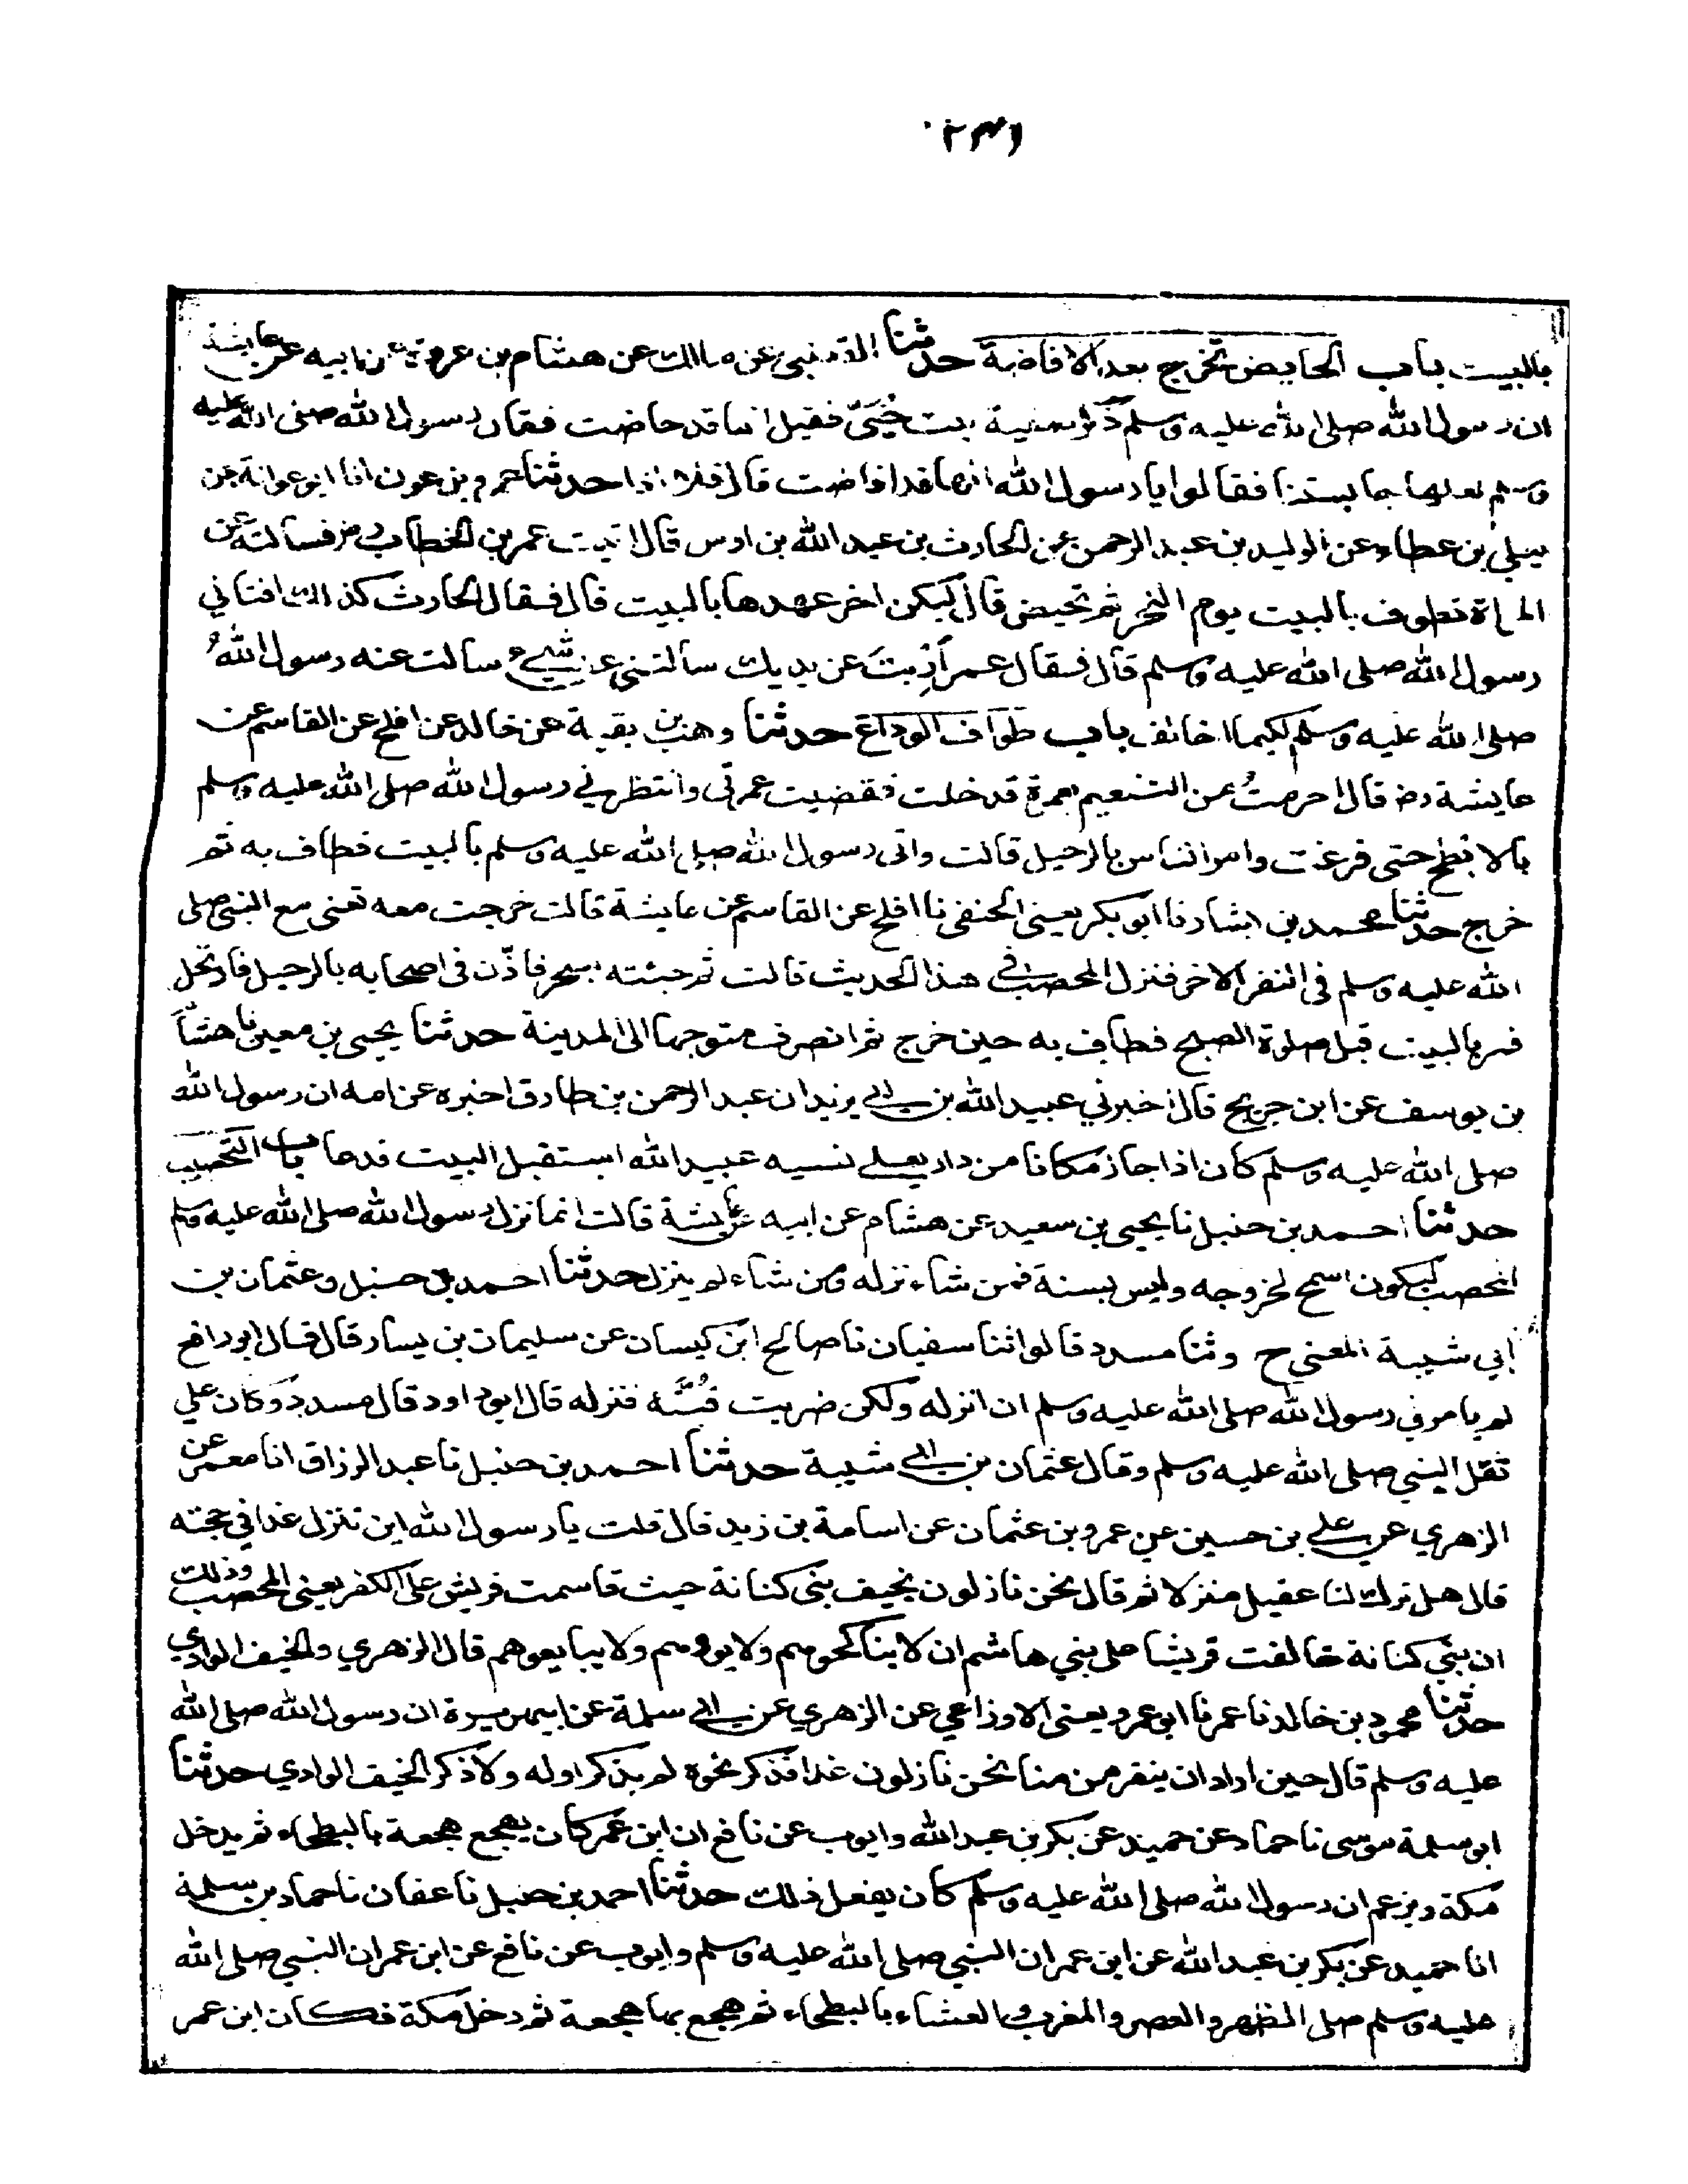 بالبيت باب الحايض تخرج بعد الافاضة حدثنا القعنبي عن مالك عن هشام بن عروة عن ابيه عن عايشة
ان رسول الله صلى الله عليه وسلم ذكر صفية بنت حُيَيّ فقيل انها قد حاضت فقال رسول الله صلى الله عليه
وسلم لعلها حابستنا فقالوا يا رسول الله انها قد افاضت قال فلا اذا حدثنا عمرو بن عون انا ابو عوانة عن
يعلي بن عطاء عن الوليد بن عبد الرحمن عن الحارث بن عبد الله بن اوس قال اتيت عمر بن الخطاب رض فسالته عن
المراة تطوف بالبيت يوم النحر ثم تحيض قال ليكن اخر عهدها بالبيت قال فقال الحارث كذلك افتاني
رسول الله صلى الله عليه وسلم قال فقال عمر أرِبتَ عن يديك سالتني عن شيء سالت عنه رسول الله
صلى الله عليه وسلم لكيما اخالف باب طواف الوداع حدثنا وهب بن بقية عن خالد عن افلح عن القاسم عن
عايشة رض قال احرمتُ من التنعيم بعمرة فدخلت فقضيت عمرتي وانتظرني رسول الله صلى الله عليه وسلم
بالابطح حتى فرغت وامر الناس بالرحيل قالت واتى رسول الله صلى الله عليه وسلم بالبيت فطاف به ثم
خرج حدثنا محمد بن بشار نا ابو بكر يعني الحنفي نا افلح عن القاسم عن عايشة قالت خرجت معه تعني مع النبي صلى
الله عليه وسلم في النفر الاخر فنزل المحصب في هذا الحديث قالت ثم جئته بسحر فاذّن في اصحابه بالرحيل فارتحل
فمر بالبيت قبل صلوة الصبح فطاف به حين خرج ثم انصرف متوجها الى المدينة حدثنا يحيى بن معين نا هشام
بن يوسف عن ابن جريج قال اخبرني عبيد الله بن ابي يزيد ان عبد الرحمن بن طارق اخبره عن امه ان رسول الله
صلى الله عليه وسلم كان اذا جاز مكانا من دار يعلي نسيه عبيد الله استقبل البيت فدعا باب التحصيب
حدثنا احمد بن حنبل نا يحيى بن سعيد عن هشام عن ابيه عن عايشة قالت انما نزل رسول الله صلى الله عليه وسلم
المحصب ليكون اسمح لخروجه وليس بسنة فمن شاء نزله ومن شاء لم ينزل حدثنا احمد بن حنبل وعثمان بن
ابي شيبة المعنى ح وثنا مسدد قالوا ثنا سفيان نا صالح ابن كيسان عن سليمان بن يسار قال قال ابو رافع
لم يامرني رسول الله صلى الله عليه وسلم ان انزله ولكن ضربت قُبَّته فنزله قال ابو داود قال مسدد وكان علي
ثقل النبي صلى الله عليه وسلم وقال عثمان بن ابي شيبة حدثنا احمد بن حنبل نا عبد الرزاق انا معمر عن
الزهري عن علي بن حسين عن عمرو بن عثمان عن اسامة بن زيد قال قلت يا رسول الله اين تنزل غدا في حجته
قال هل ترك لنا عقيل منزلا ثم قال نحن نازلون بخيف بني كنانة حيث قاسمت قريش على الكفر يعني المحصب وذلك
ان بني كنانة حالفت قريشا على بني هاشم ان لا يناكحوهم ولا يووهم ولا يبايعوهم قال الزهري والخيف الوادي
حدثنا محمود بن خالد نا عمر نا ابو عمرو يعني الاوزاعي عن الزهري عن ابي سلمة عن ابي هريرة ان رسول الله صلى الله
عليه وسلم قال حين اراد ان ينفر من منا نحن نازلون غدا فذكر نحوه لم يذكر اوله ولا ذكر الخيف الوادي حدثنا
ابو سلمة موسى نا حماد عن حميد عن بكر بن عبد الله وايوب عن نافع ان ابن عمر كان يهجع هجعة بالبطحاء ثم يدخل
مكة ويزعم ان رسول الله صلى الله عليه وسلم كان يفعل ذلك حدثنا احمد بن حنبل نا عفان نا حماد بن سلمة
انا حميد عن بكر بن عبد الله عن ابن عمر ان النبي صلى الله عليه وسلم وايوب عن نافع عن ابن عمر ان النبي صلى الله
عليه وسلم صلى الظهر والعصر والمغرب والعشاء بالبطحاء ثم هجع بها هجعة ثم دخل مكة فكان ابن عمر